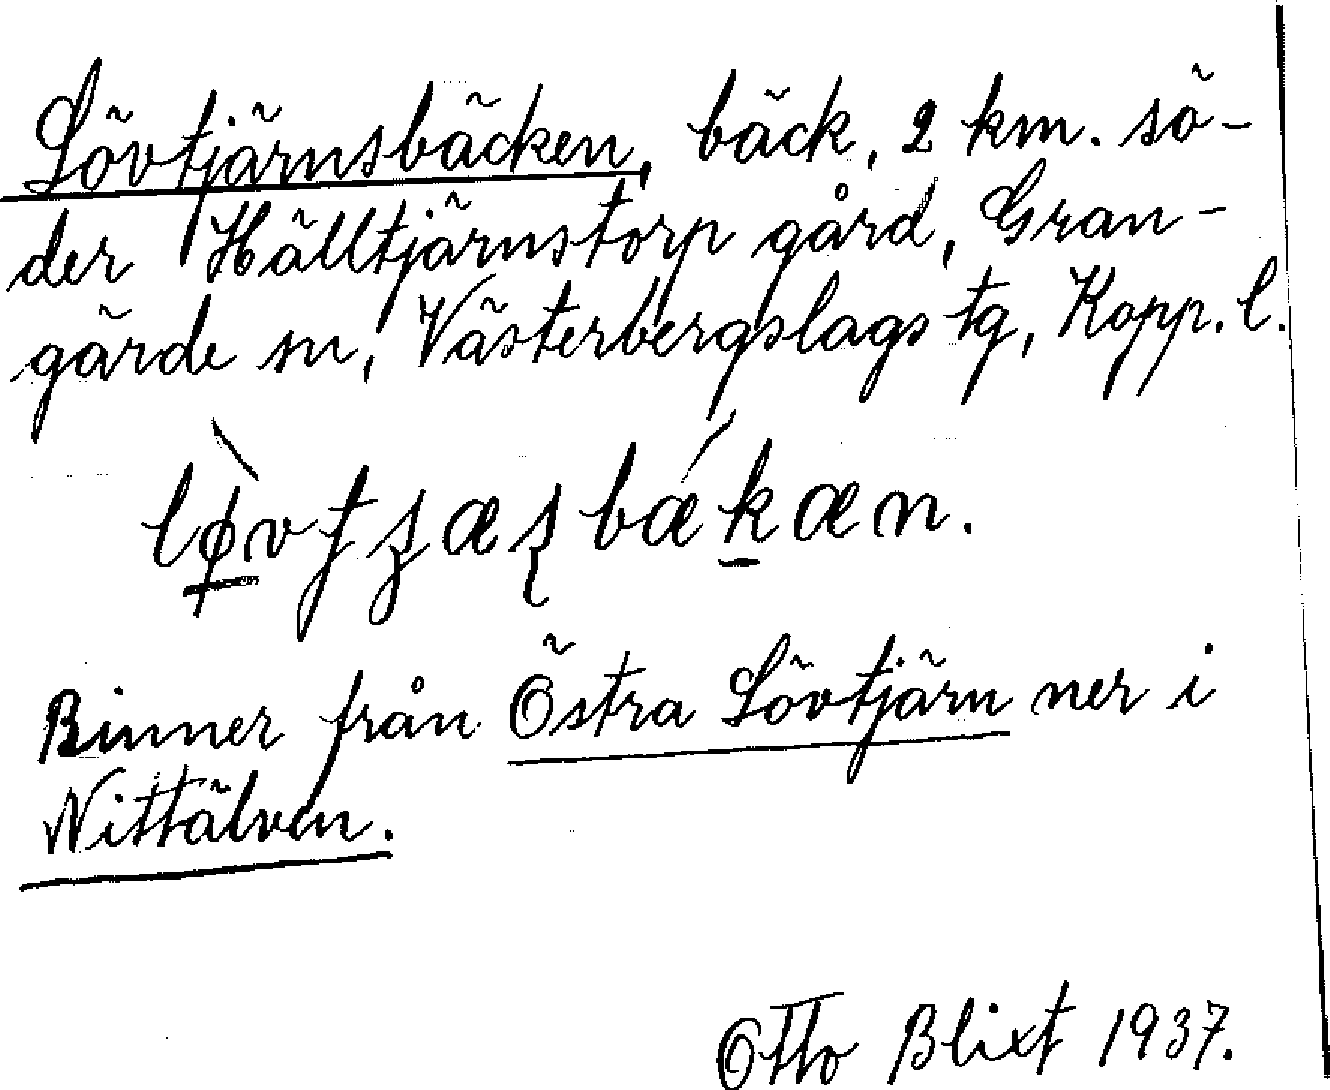 Lövtjärnsbäcken, bäck, 2 km. sö-
der Hälltjärnstorp gård, Gran-
gärde sn, Västerbergslags tg, Kopp. l.
Rinner från Östra Lövtjärn ner i
Nittälven.
Otto Blixt 1937.